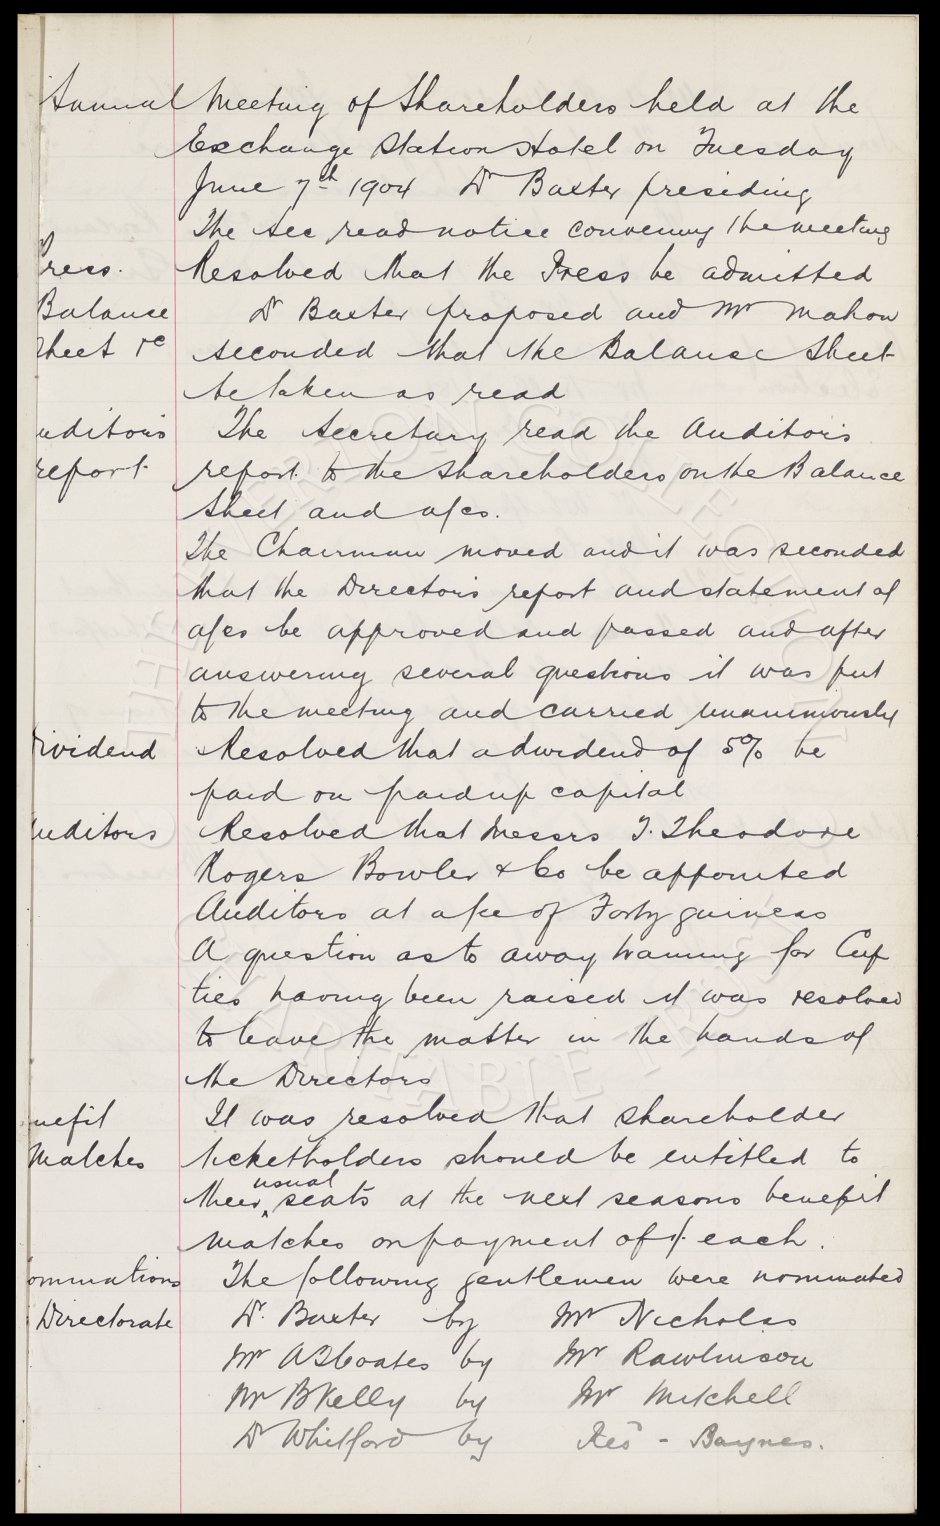 Annual Meeting of Shareholders held at the
Exchange Station Hotel on Tuesday
June 7th 1904 Dr Baxter presiding
The Sec read notice convening the meeting
Press. Resolved that the Press be admitted
Balance Dr Baxter proposed and Mr Mahon
Sheet &c seconded that the Balance Sheet
be taken as read
uditors The Secretary read the Auditor's
report. report to the Shareholders on the Balance
Sheet and a/cs.
The Chairman moved and it was seconded
that the Directors report and statement of
a/cs be approved and passed and after
answering several questions it was put
to the meeting and carried unanimously
Dividend Resolved that a dividend of 5% be
paid on paid up capital
Auditors Resolved that Messrs T. Theodore
Rogers Bowler & Co be appointed
Auditors at a fee of Forty guineas
A question as to away training for Cup
ties having been raised it was resolved
to leave the matter in the hands of
the Directors
nefit It was resolved that shareholder
Matches ticketholders should be entitled to
their usual seats at the next seasons benefit
matches on payment of 1/- each.
ominations The following gentlemen were nominated
Directorate Dr. Baxter by Mr Nicholas
Mr A Coates by Mr Rawlinson
Mr B Kelly by Mr Mitchell
Dr Whitford by - Baynes.